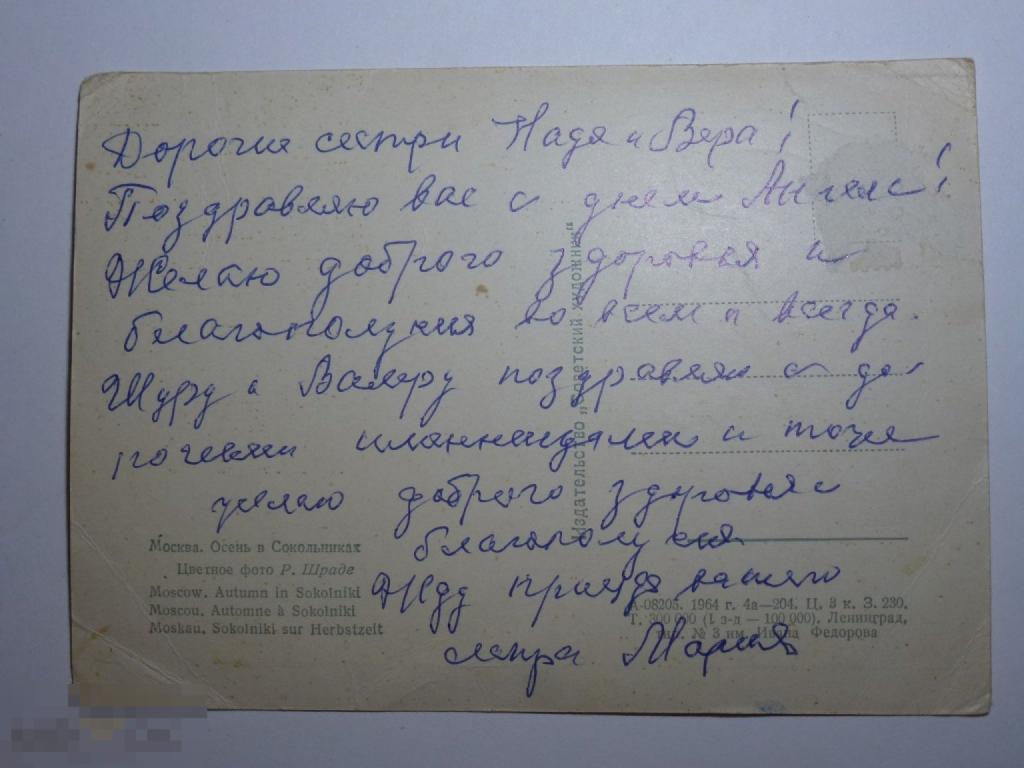 Дорогие сестри Надя и Вера!
Поздравляю вас с днем Ангела!
Желаю доброго здоровья и
благополучия во всем и всегда.
Шуру и Валеру поздравляю с до
рогими и тоже
желаю доброго здоровья
благополучия
Жду приезда вашего
сестра Мария
Издательство „Советский художник“
Москва. Осень в Сокольниках
Цветное фото Р. Шраде
Moscow. Autumn in Sokolniki
Moscou. Automne à Sokolniki
Moskau. Sokolniki zur Herbstzeit
А-08205. 1964 г. 4а—204. Ц. 3 к. З. 230.
Т. 300 000 (1 з-д — 100 000). Ленинград,
тип. № 3 им. Ивана Федорова